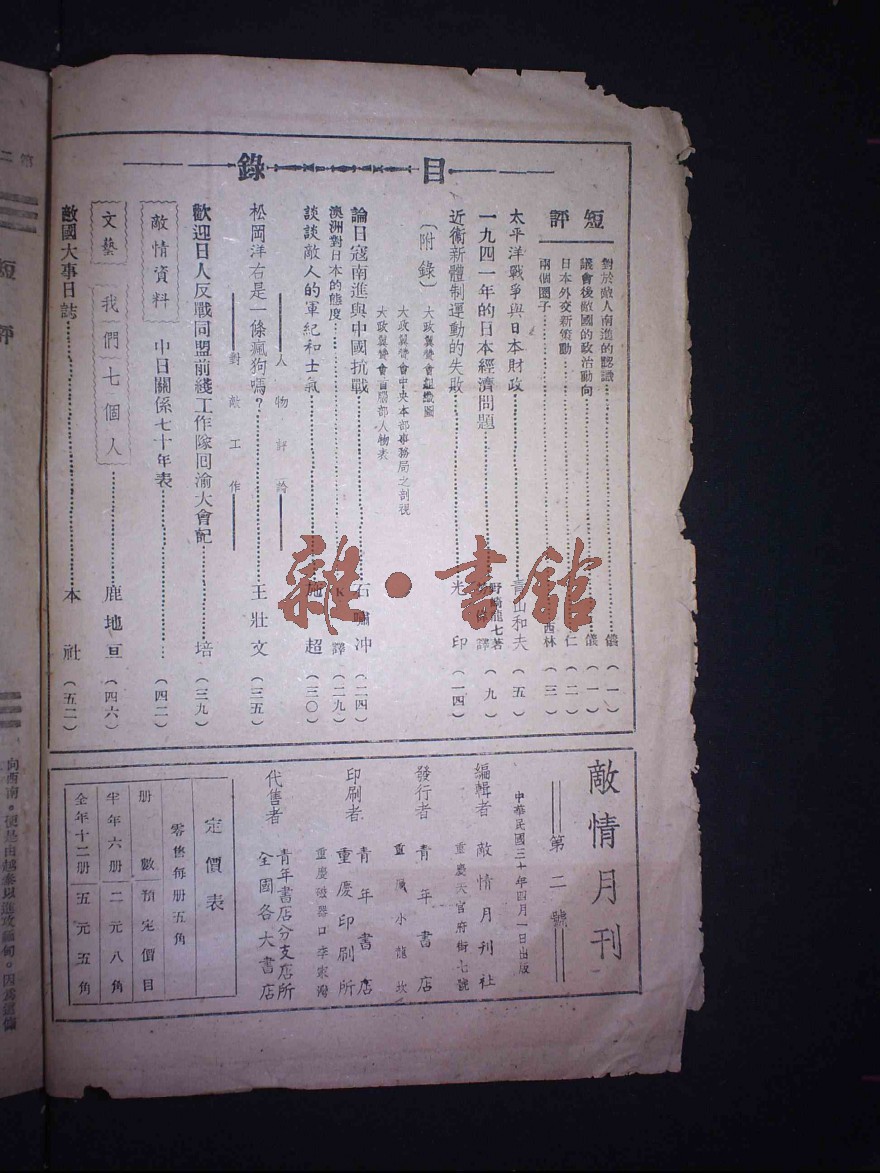 目錄
短評
對於敵人南進的認識………儀（一）
議會後敵國的政治動向………儀（一）
日本外交新策動………仁（二）
兩個圈子………西林（三）
太平洋戰爭與日本財政………青山和夫（五）
一九四一年的日本經濟問題………野崎龍七著 譯（九）
近衞新體制運動的失敗………光印（一四）
〔附錄〕
大政翼贊會組織圖
大政翼贊會中央本部事務局之剖視
大政翼贊會首腦部人物表
論日寇南進與中國抗戰………石嘯沖（二四）
澳洲對日本的態度………譯（二九）
談談敵人的軍紀和士氣………施超（三〇）
人物評論
松岡洋右是一條瘋狗嗎？………王壯文（三五）
對敵工作
歡迎日人反戰同盟前綫工作隊回渝大會記………培（三九）
敵情資料
中日關係七十年表………（四二）
文藝
我們七個人………鹿地亘（四六）
敵國大事日誌………本社（五二）
敵情月刊
第二號
中華民國三十年四月一日出版
編輯者 敵情月刊社
重慶天官府街七號
發行者 青年書店
重慶小龍坎
印刷者 青年書店
重慶印刷所
重慶磁器口李家灣
代售者 青年書店分支店所
全國各大書店
定價表
零售每册五角
册數 預定價目
半年六册 二元八角
全年十二册 五元五角
雜·書館
短評